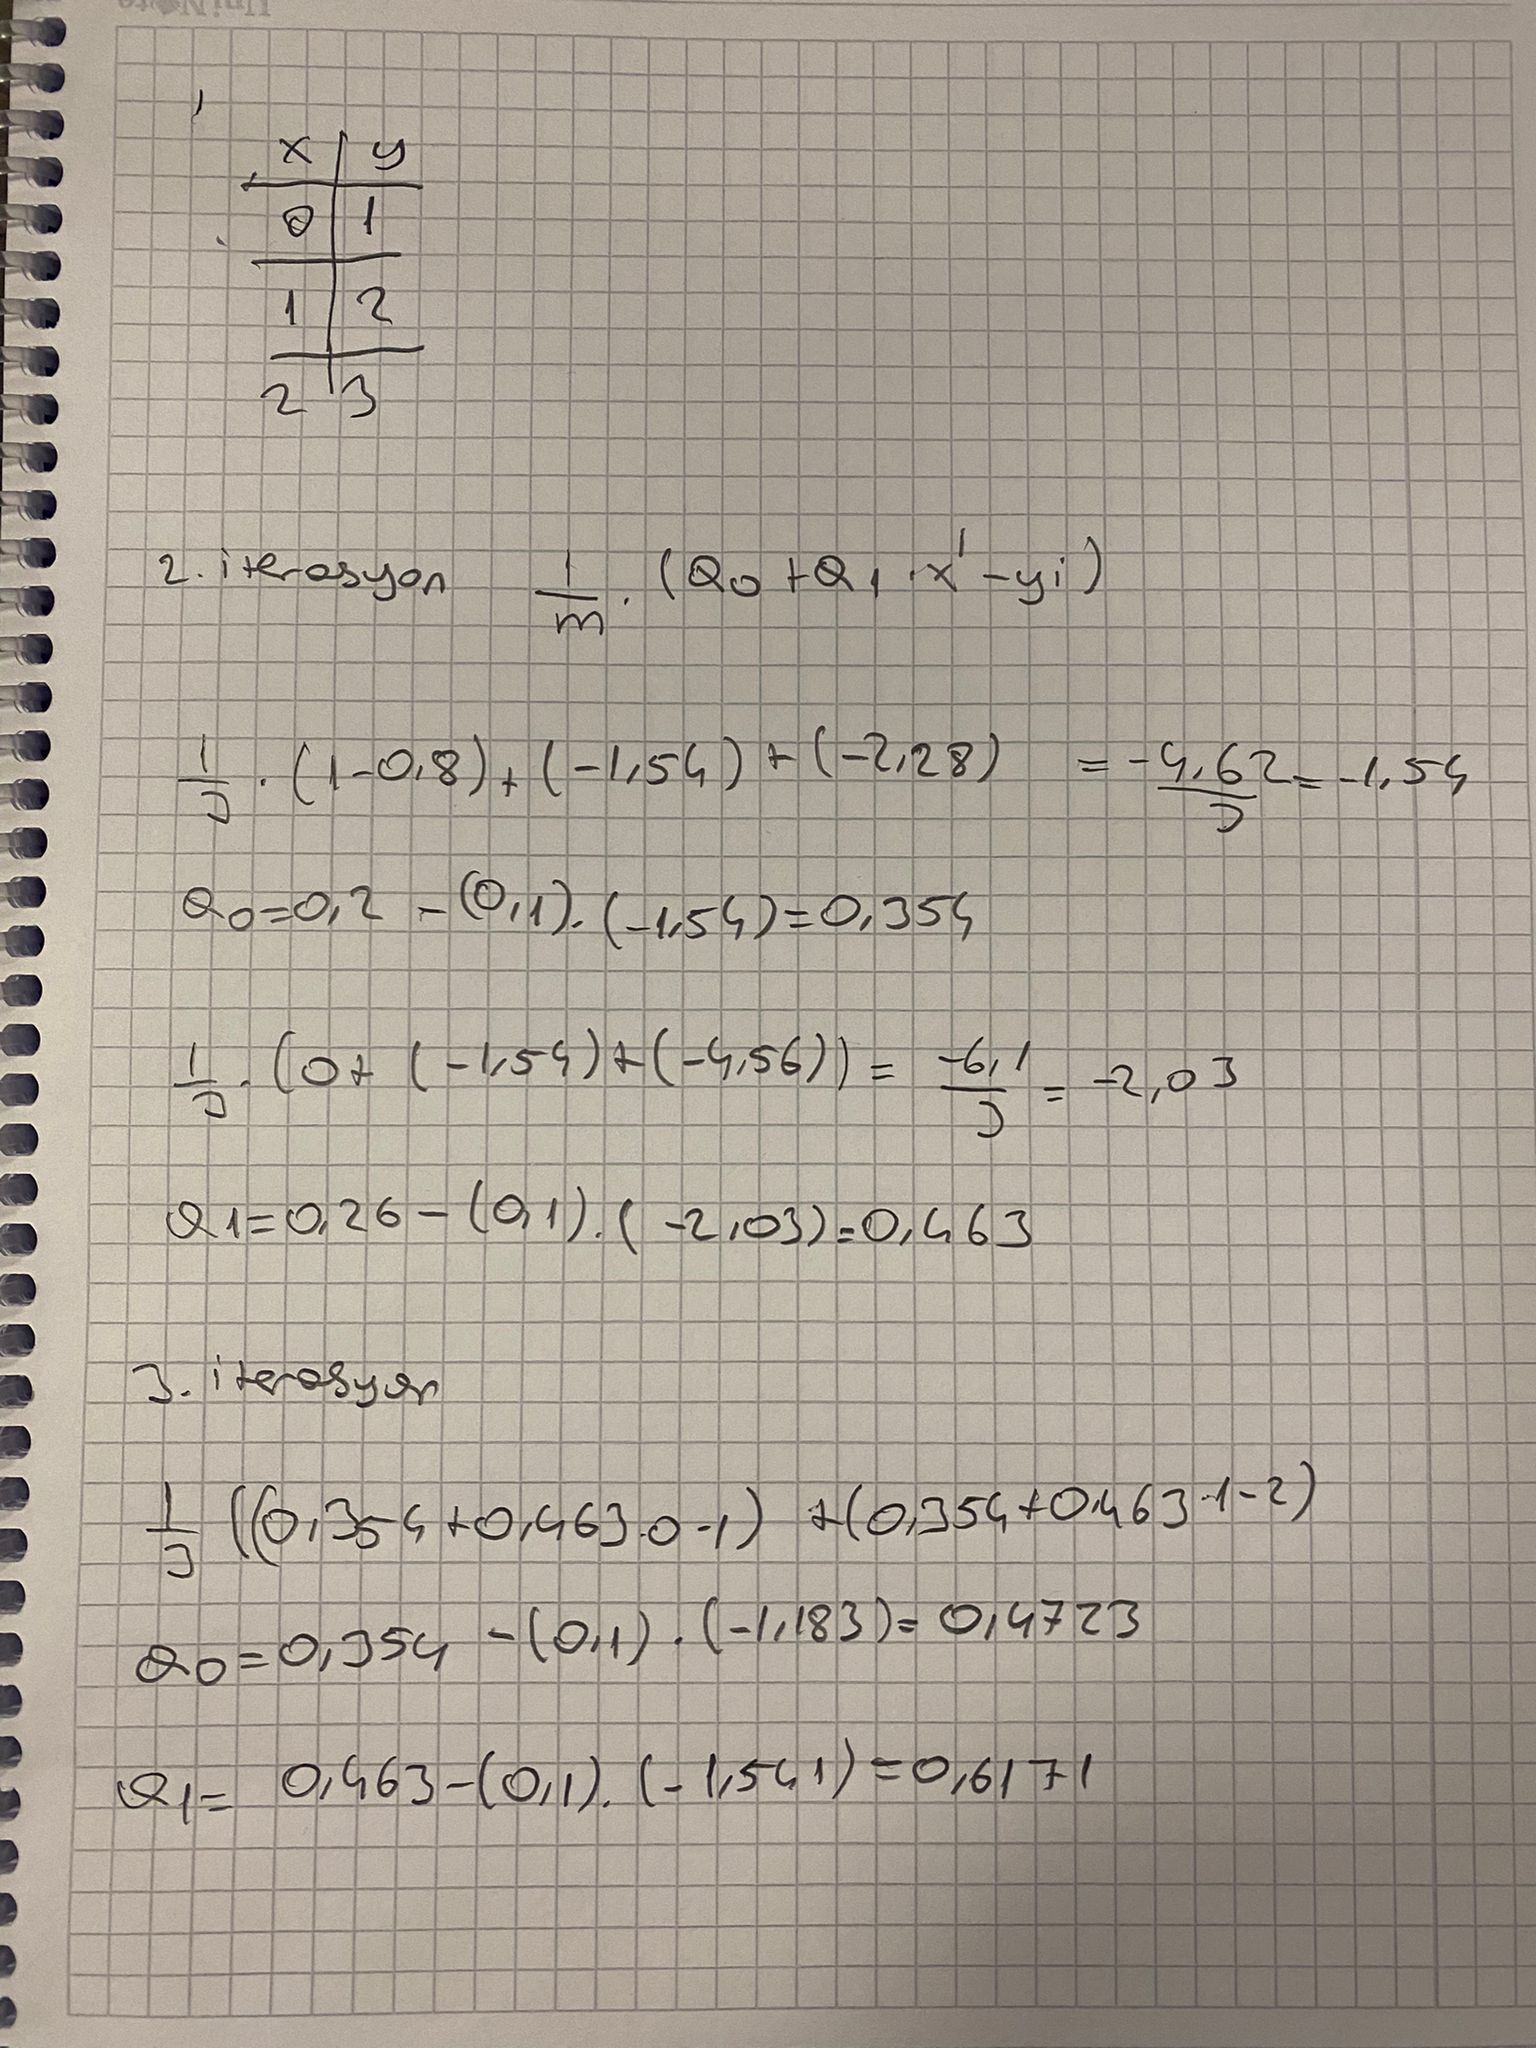 x | y
0 | 1
1 | 2
2 | 3
2. iterasyon 1/m . (Q0 + Q1 . x^i - yi)
1/3 . (1-0,8) + (-1,54) + (-2,28) = -4,62/3 = -1,54
Q0 = 0,2 - (0,1) . (-1,54) = 0,354
1/3 . (0 + (-1,54) + (-4,56)) = -6,1/3 = -2,03
Q1 = 0,26 - (0,1) . (-2,03) = 0,463
3. iterasyon
1/3 ((0,354 + 0,463.0-1) + (0,354 + 0,463.1-2)
Q0 = 0,354 - (0,1) . (-1,183) = 0,4723
Q1 = 0,463 - (0,1) . (-1,541) = 0,6171